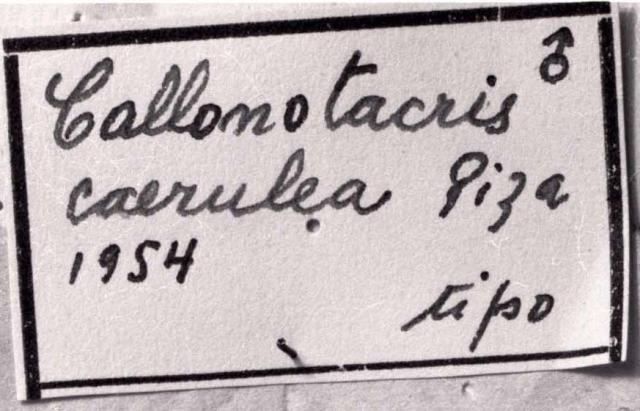 Callonotacris ♂
caerulea Piza
1954
tipo